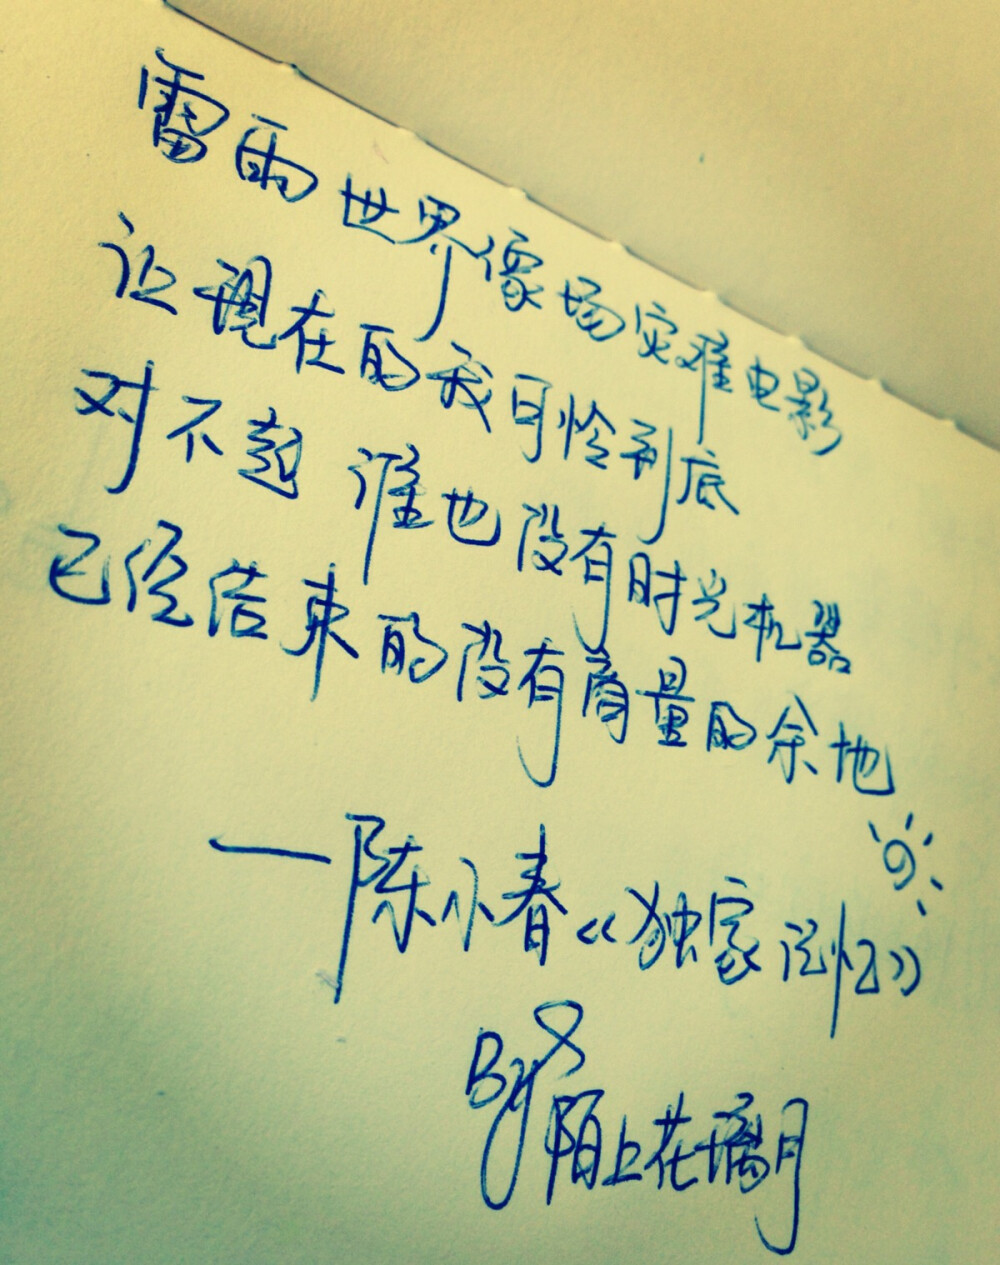 雷雨世界像场灾难电影
让现在的我可怜到底
对不起 谁也没有时光机器
已经结束的没有商量的余地
——陈小春《独家记忆》
By
陌上花璃月